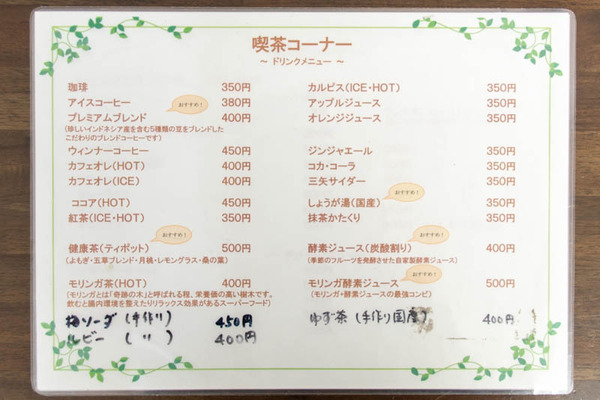 喫茶コーナー
～ ドリンクメニュー ～
珈琲 350円
アイスコーヒー おすすめ！ 380円
プレミアムブレンド 400円
(珍しいインドネシア産を含む5種類の豆をブレンドした
こだわりのブレンドコーヒーです)
ウィンナーコーヒー 450円
カフェオレ(HOT) 400円
カフェオレ(ICE) 400円
ココア(HOT) 450円
紅茶(ICE・HOT) 350円
おすすめ！
健康茶(ティポット) 500円
(よもぎ・五草ブレンド・月桃・レモングラス・桑の葉)
モリンガ茶(HOT) 400円
(モリンガとは「奇跡の木」と呼ばれる程、栄養価の高い樹木です。
飲むと腸内環境を整えたりリラックス効果があるスーパーフード)
梅ソーダ (手作り) 450円
ルビー (〃) 400円
カルピス(ICE・HOT) 350円
アップルジュース 350円
オレンジジュース 350円
ジンジャエール 350円
コカ・コーラ 350円
三矢サイダー 350円
おすすめ！
しょうが湯(国産) 350円
抹茶かたくり 350円
おすすめ！
酵素ジュース(炭酸割り) 400円
(季節のフルーツを発酵させた自家製酵素ジュース)
おすすめ！
モリンガ酵素ジュース 500円
(モリンガ・酵素ジュースの最強コンビ)
ゆず茶 (手作り国産) 400円